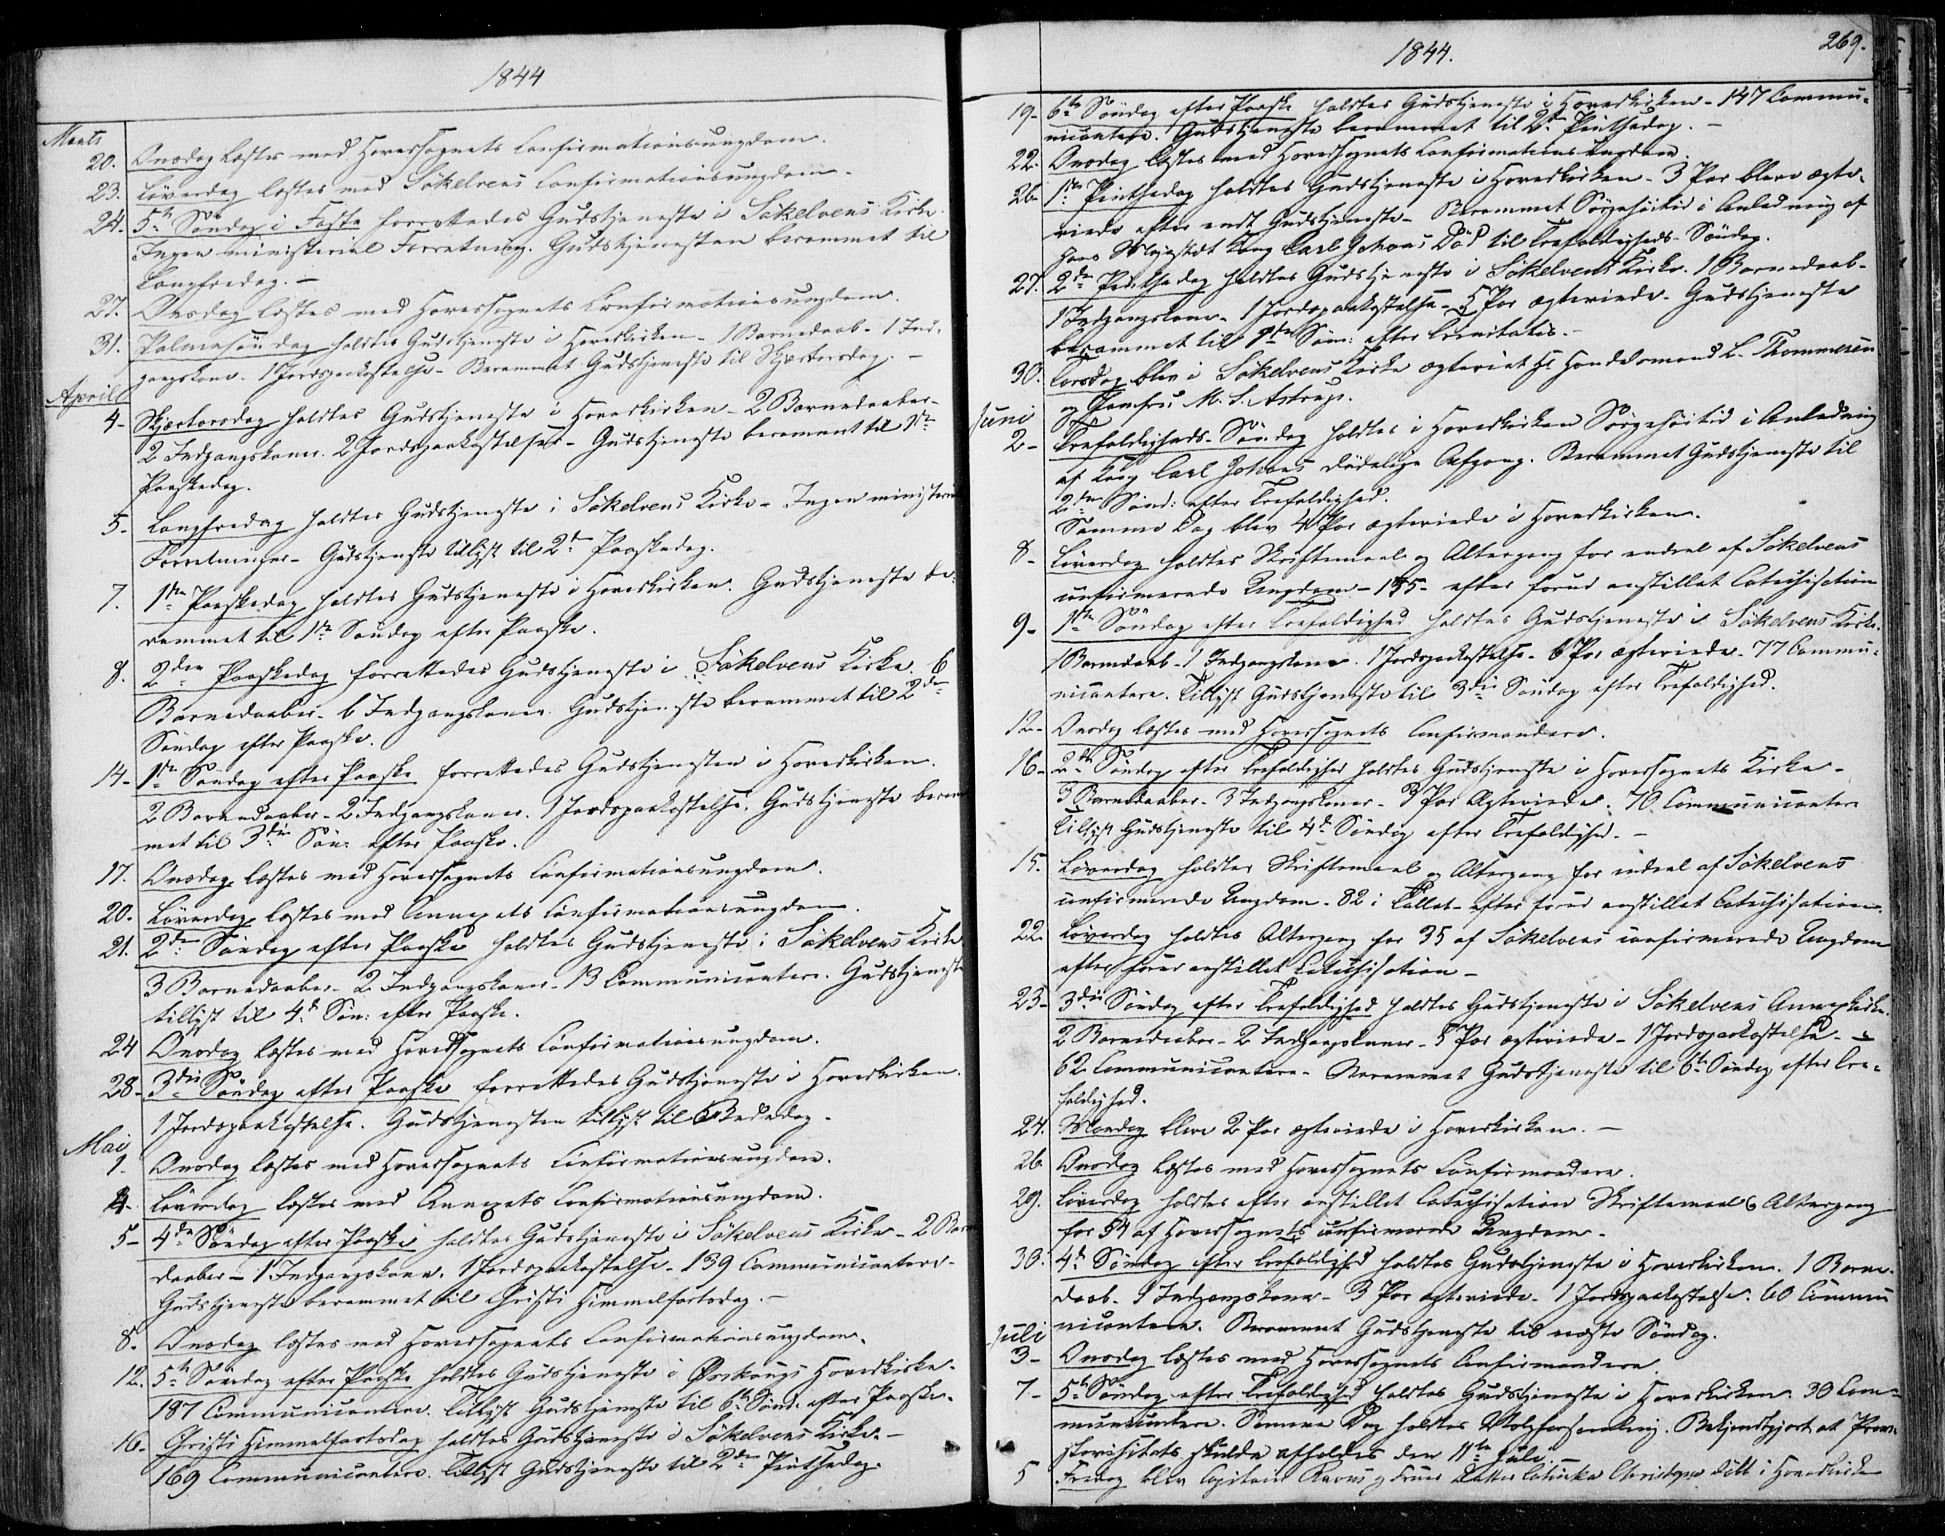 1844
Marts
20. Onsdag læstes med Hovedsognets Confirmationsungdom.
23. Løverdag læstes med Sökelvens Confirmationsungdom.
24. 5te Søndag i Faste forrettedes Gudstjeneste i Sökelvens Kirke.
Ingen ministerial Forretning. Gudstjenesten berammet til
Langfredag. —
27. Onsdag læstes med Hovedsognets Confirmationsungdom.
31. Palmesöndag holdtes Gudstjeneste i Hovedkirken - 1 Barnedaab - 1 Ind-
gangskone. 1 Jordspaakastelse - Berammet Gudstjeneste til Skjertorsdag. —
April
4- Skjertorsdag holdtes Gudstjeneste i Hovedkirken - 2 Barnedaaber -
2 Indgangskoner. 2 Jordspaakastelser - Gudstjeneste berammet til 1ste
Paaskedag.
5- Langfredag holdtes Gudstjeneste i Sökelvens Kirke - Ingen ministerial
Forretninger - Gudstjeneste tillyst til 2den Paaskedag.
7. 1ste Paaskedag holdtes Gudstjeneste i Hovedkirken. Gudstjeneste be-
rammet til 1ste Søndag efter Paaske.
8. 2den Paaskedag forrettedes Gudstjeneste i Sökelvens Kirke 6
Barnedaaber - 6 Indgangskoner. Gudstjeneste berammet til 2den
Søndag efter Paaske.
14- 1ste Søndag efter Paaske forrettedes Gudstjenesten i Hovedkirken.
2 Barnedaaber - 2 Indgangskoner. 1 Jordspaakastelse. Gudstjeneste beram
met til 3die Søn: efter Paaske.
17. Onsdag læstes med Hovedsognets Confirmationsungdom.
20. Løverdag læstes med Annexets Confirmationsungdom.
21. 2den Søndag efter Paaske holdtes Gudstjeneste i Sökelvens Kirke
3 Barnedaaber - 2 Indgangskoner - 13 Communicantere. Gudstjeneste
tillyst til 4de Søn: efter Paaske.
24 Onsdag læstes med Hovedsognets Confirmationsungdom.
28- 3die Søndag efter Paaske forrettedes Gudstjeneste i Hovedkirken.
1 Jordspaakastelse. Gudstjenesten tillyst til Bededag.
Mai
1. Onsdag læstes med Hovedsognets Confirmationsungdom.
4. Løverdag læstes med Annexets Confirmationsungdom.
5- 4de Søndag efter Paaske holdtes Gudstjeneste i Sökelvens Kirke - 2 Barne
daaber - 1 Indgangskone. 1 Jordspaakastelse - 139 Communicantere -
Gudstjeneste berammet til Christi Himmelfartsdag. —
8. Onsdag læstes med Hovedsognets Confirmationsungdom.
12. 5te Søndag efter Paaske holdtes Gudstjeneste i Ørskougs Hovedkirke -
187 Communicantere. Tillyst Gudstjeneste til 6te Sönd. efter Paaske.
16. Christi Himmelfartsdag holdtes Gudstjeneste i Sökelvens Kirke. —
169 Communicantere. Tillyst Gudstjeneste til 2den Pintsedag.
1844.
269.
19- 6te Søndag efter Paaske holdtes Gudstjeneste i Hovedkirken - 147 Commu-
nicantere. Gudstjeneste berammet til 2den Pintsedag. —
22. Onsdag læstes med Hovedsognets Confirmations Ungdom.
26. 1ste Pintsedag holdtes Gudstjeneste i Hovedkirken - 3 Par bleve ægte-
viede efter endt Gudstjeneste - Berammet Sörgehöitid i Anledning af
Hans Majestæt Kong Carl Johans Död til Trefoldigheds-Søndag.
27. 2den Pintsedag holdtes Gudstjeneste i Sökelvens Kirke. 1 Barnedaab -
1 Indgangskone - 1 Jordspaakastelse - 5 Par ægteviede - Gudstjeneste
berammet til 1ste Søn: efter Trinitatis. -
30. Torsdag blev i Sökelvens Kirke ægteviet Hr Handelsmand L. Thommesen
og Jomfru M. S. Astrup.
Juni
2- Trefoldigheds-Søndag holdtes i Hovedkirken Sörgehöitid i Anledning
af Kong Carl Johans dödelige Afgang. Berammet Gudstjeneste til
2den Sönd: efter Trefoldighed.
Samme Dag blev 4 Par ægteviede i Hovedkirken.
8- Løverdag holdtes Skriftemaal og Altergang for endeel af Sökelvens
confirmerede Ungdom - 155 - efter forud anstillet Catechisation
9- 1ste Søndag efter Trefoldighed holdtes Gudstjeneste i Sökelvens Kirke.
1 Barnedaab - 1 Indgangskone. 1 Jordspaakastelse - 6 Par ægteviede - 77 Commu-
nicantere. Tillyst Gudstjeneste til 3die Søndag efter Trefoldighed.
12- Onsdag læstes med Hovedsognets Confirmandere.
16- 2den Søndag efter Trefoldighed holdtes Gudstjeneste i Hovedsognets Kirke -
3 Barnedaaber - 3 Indgangskoner - 3 Par Ægteviede. 70 Communicantere
Tillyst Gudstjeneste til 4de Søndag efter Trefoldighed. —
15. Løverdag holdtes Skriftemaal og Altergang for endeel af Sökelvens
confirmerede Ungdom - 82 i Tallet - efter forud anstillet Catechisation.
22. Løverdag holdtes Altergang for 35 af Sökelvens confirmerede Ungdom
efter forud anstillet Catechisation —
23- 3die Søndag efter Trefoldighed holdtes Gudstjeneste i Sökelvens Annexkirke.
2 Barnedaaber - 2 Indgangskoner - 5 Par ægteviede - 1 Jordspaakastelse -
62 Communicantere - Berammet Gudstjeneste til 6te Søndag efter Tre-
foldighed.
24. Mandag bleve 2 Par ægteviede i Hovedkirken. —
26. Onsdag læstes med Hovedsognets Confirmandere.
29. Løverdag holdtes efter anstillet Catechisation Skriftemaal & Altergang
for 54 af Hovedsognets confirmerede Ungdom -
30. 4de Søndag efter Trefoldighed holdtes Gudstjeneste i Hovedkirken. 1 Barne-
daab. 1 Indgangskone - 3 Par ægteviede - 1 Jordspaakastelse. 60 Commu
nicantere. Berammet Gudstjeneste til næste Søndag.
Juli
3- Onsdag læstes med Hovedsognets Confirmandere
7- 5te Søndag efter Trefoldighed holdtes Gudstjeneste i Hovedkirken. 30 Com-
municantere. Samme Dag holdtes Valgforsamling. Bekjendtgjort at
skulde afholdes den 11te Juli. —
5 Fredag blev Capitain og Frues Datter döbt i Hovedkirken